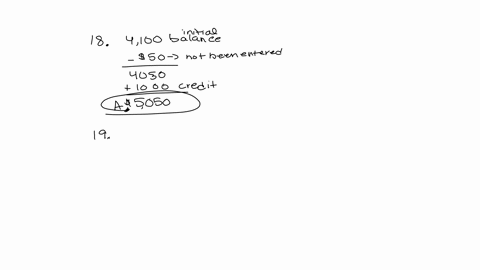 18. 4,100 initial balance
- $50 -> not been entered
4050
+ 1000 credit
A. $5,050
19.